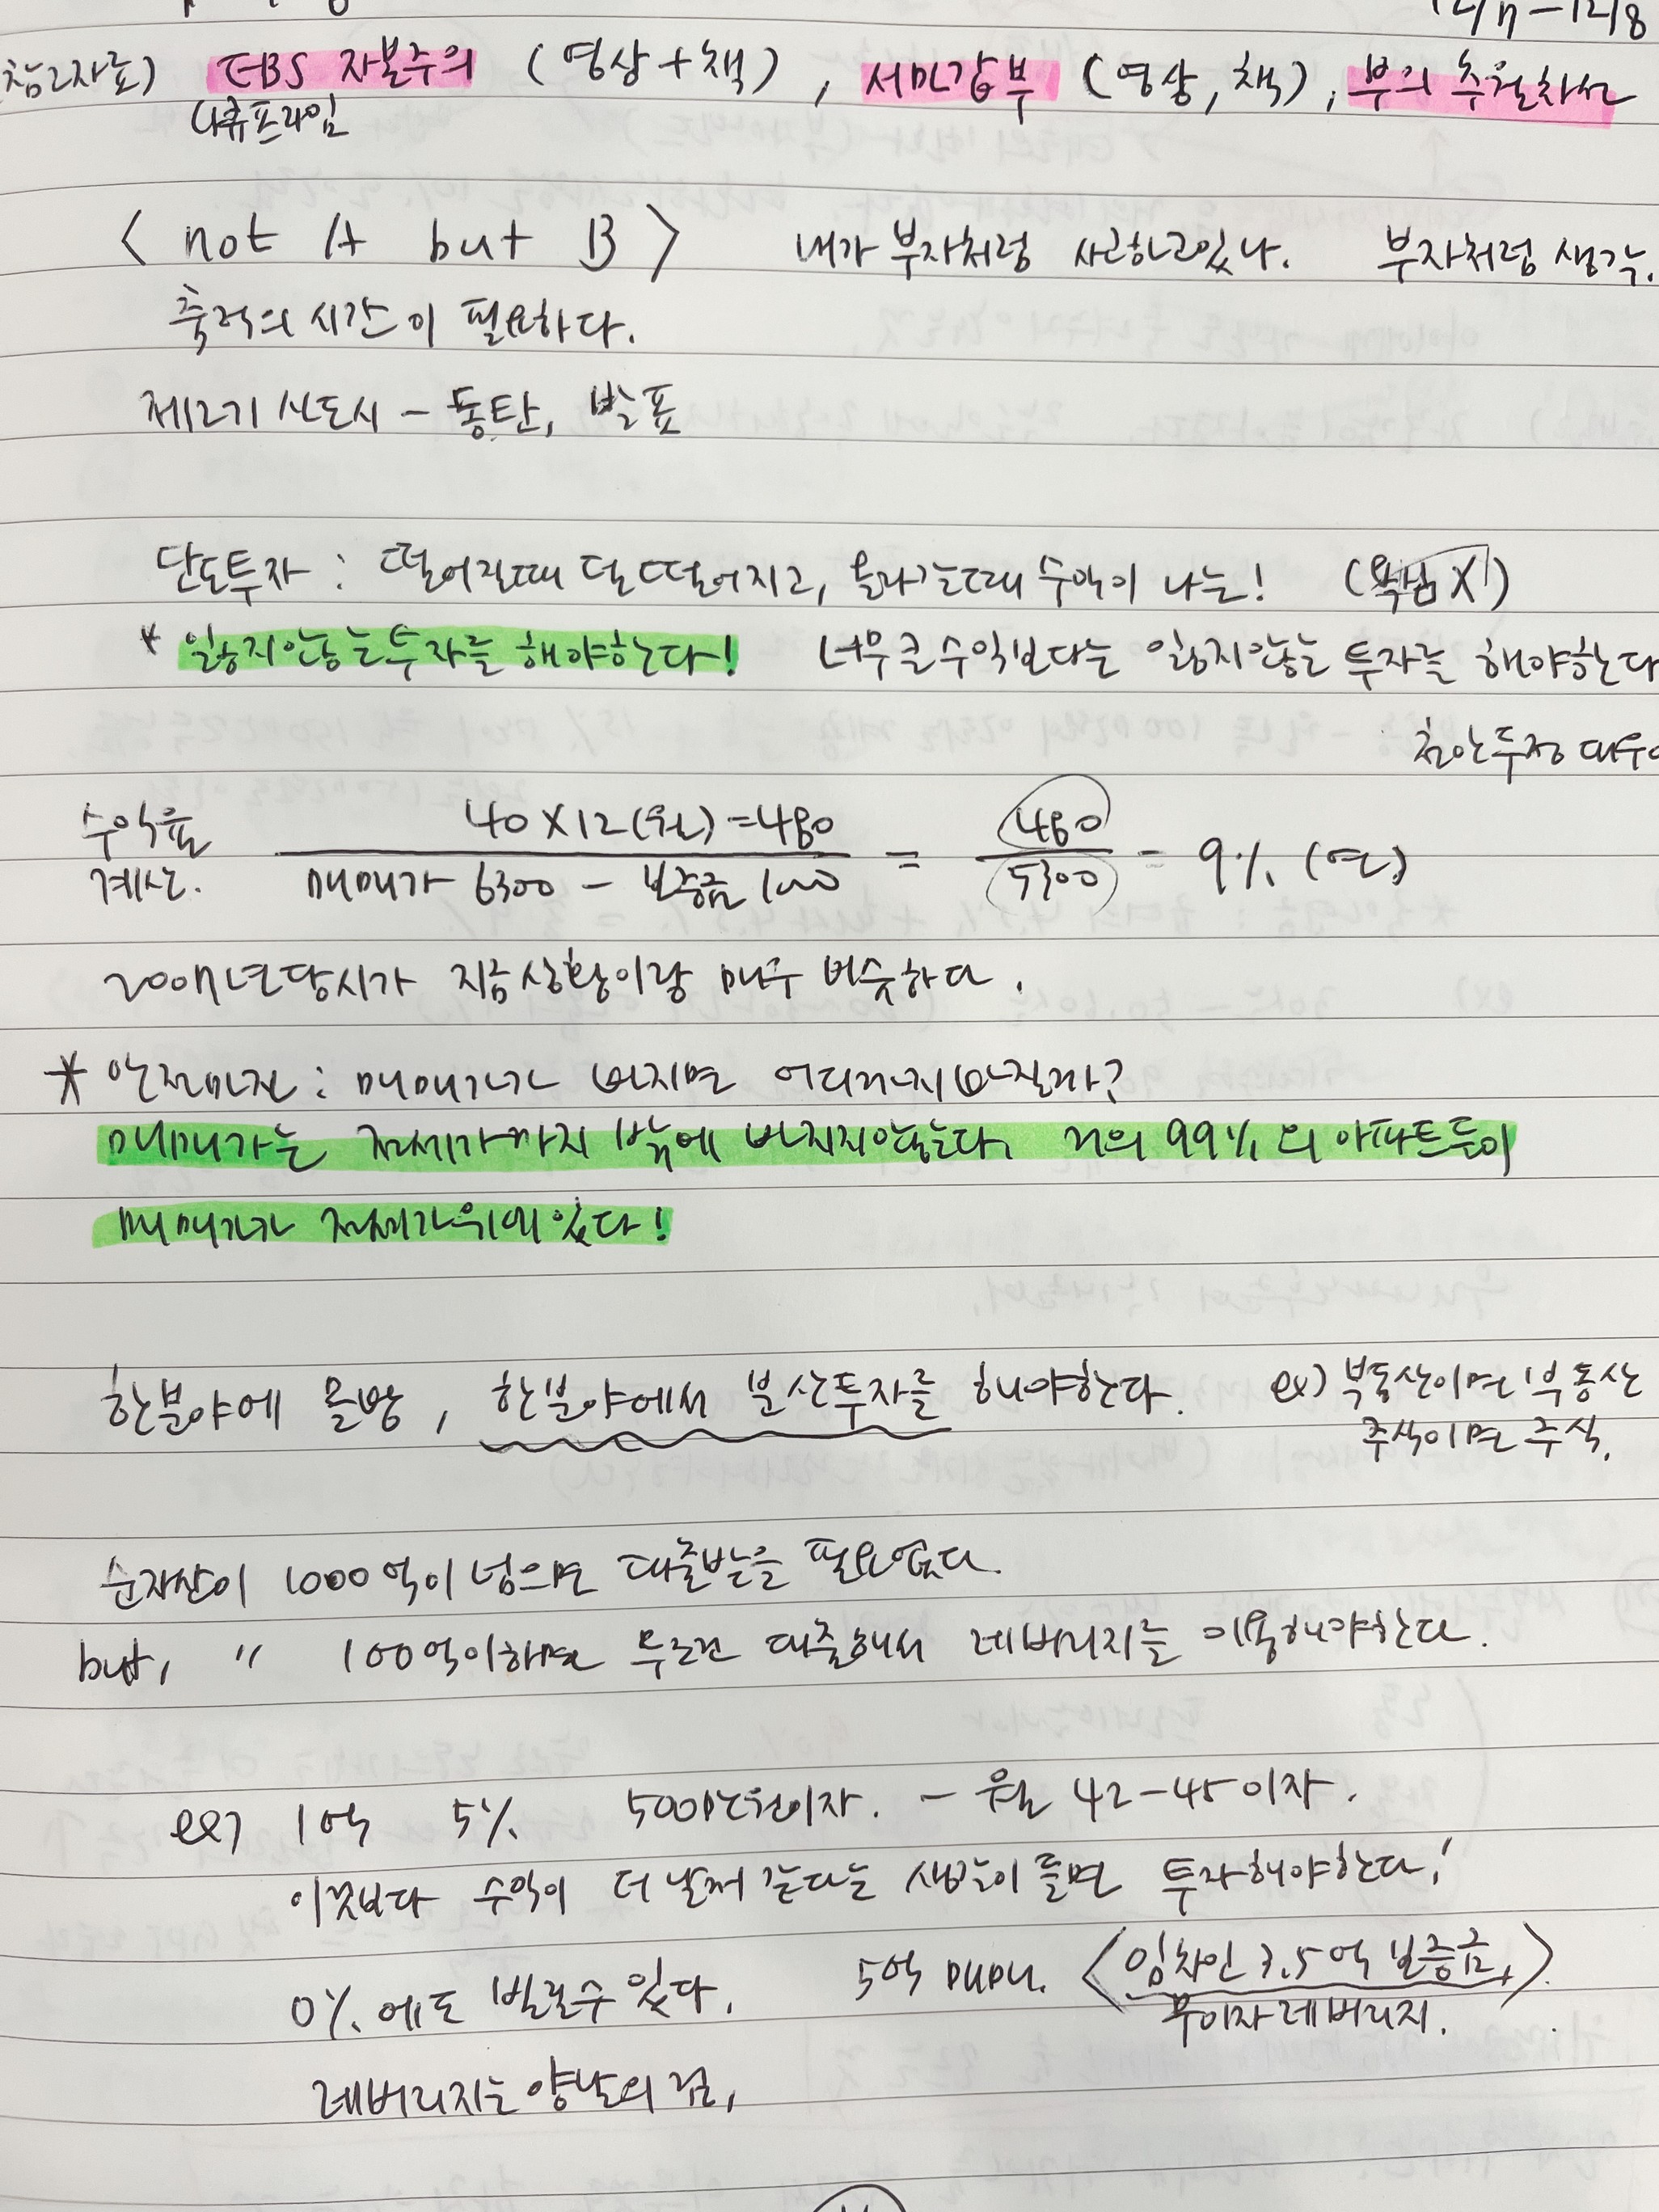 12/7-12/8
참고자료) EBS 자본주의 (영상+책), 서민갑부 (영상,책), 부의 추월차선
다큐프라임
<not A but B> 내가 부자처럼 사고하고있나. 부자처럼 생각.
축적의 시간이 필요하다.
제2기 신도시 - 동탄, 발표
단도투자 : 떨어질때 덜떨어지고, 올라갈때 수익이 나는! (욕심X)
* 잃지않는투자를 해야한다! 너무큰수익보다는 잃지않는 투자를 해야한다
천안두정 대우
수익률 40×12(월)=480 480
계산. 매매가 6300 - 보증금 1000 = 5300 = 9% (연)
2007년당시가 지금상황이랑 매우 비슷하다.
* 안전마진 : 매매가가 빠지면 어디까지빠질까?
매매가는 전세가까지 밖에 빠지지않는다. 거의 99%의 아파트들이
매매가가 전세가위에있다!
한분야에 몰빵, 한분야에서 분산투자를 해야한다. ex) 부동산이면 부동산
주식이면 주식.
순자산이 1000억이 넘으면 대출받을 필요없다.
but, " 100억이하면 무조건 대출해서 레버리지를 이용해야한다.
ex) 1억 5% 500만원이자. - 월 42-45이자.
이것보다 수익이 더 날꺼 같다는 생각이 들면 투자해야한다!
0%에도 빌릴수 있다. 5억 매매. <임차인 3.5억 보증금,>.
무이자레버리지.
레버리지는 양날의 검,